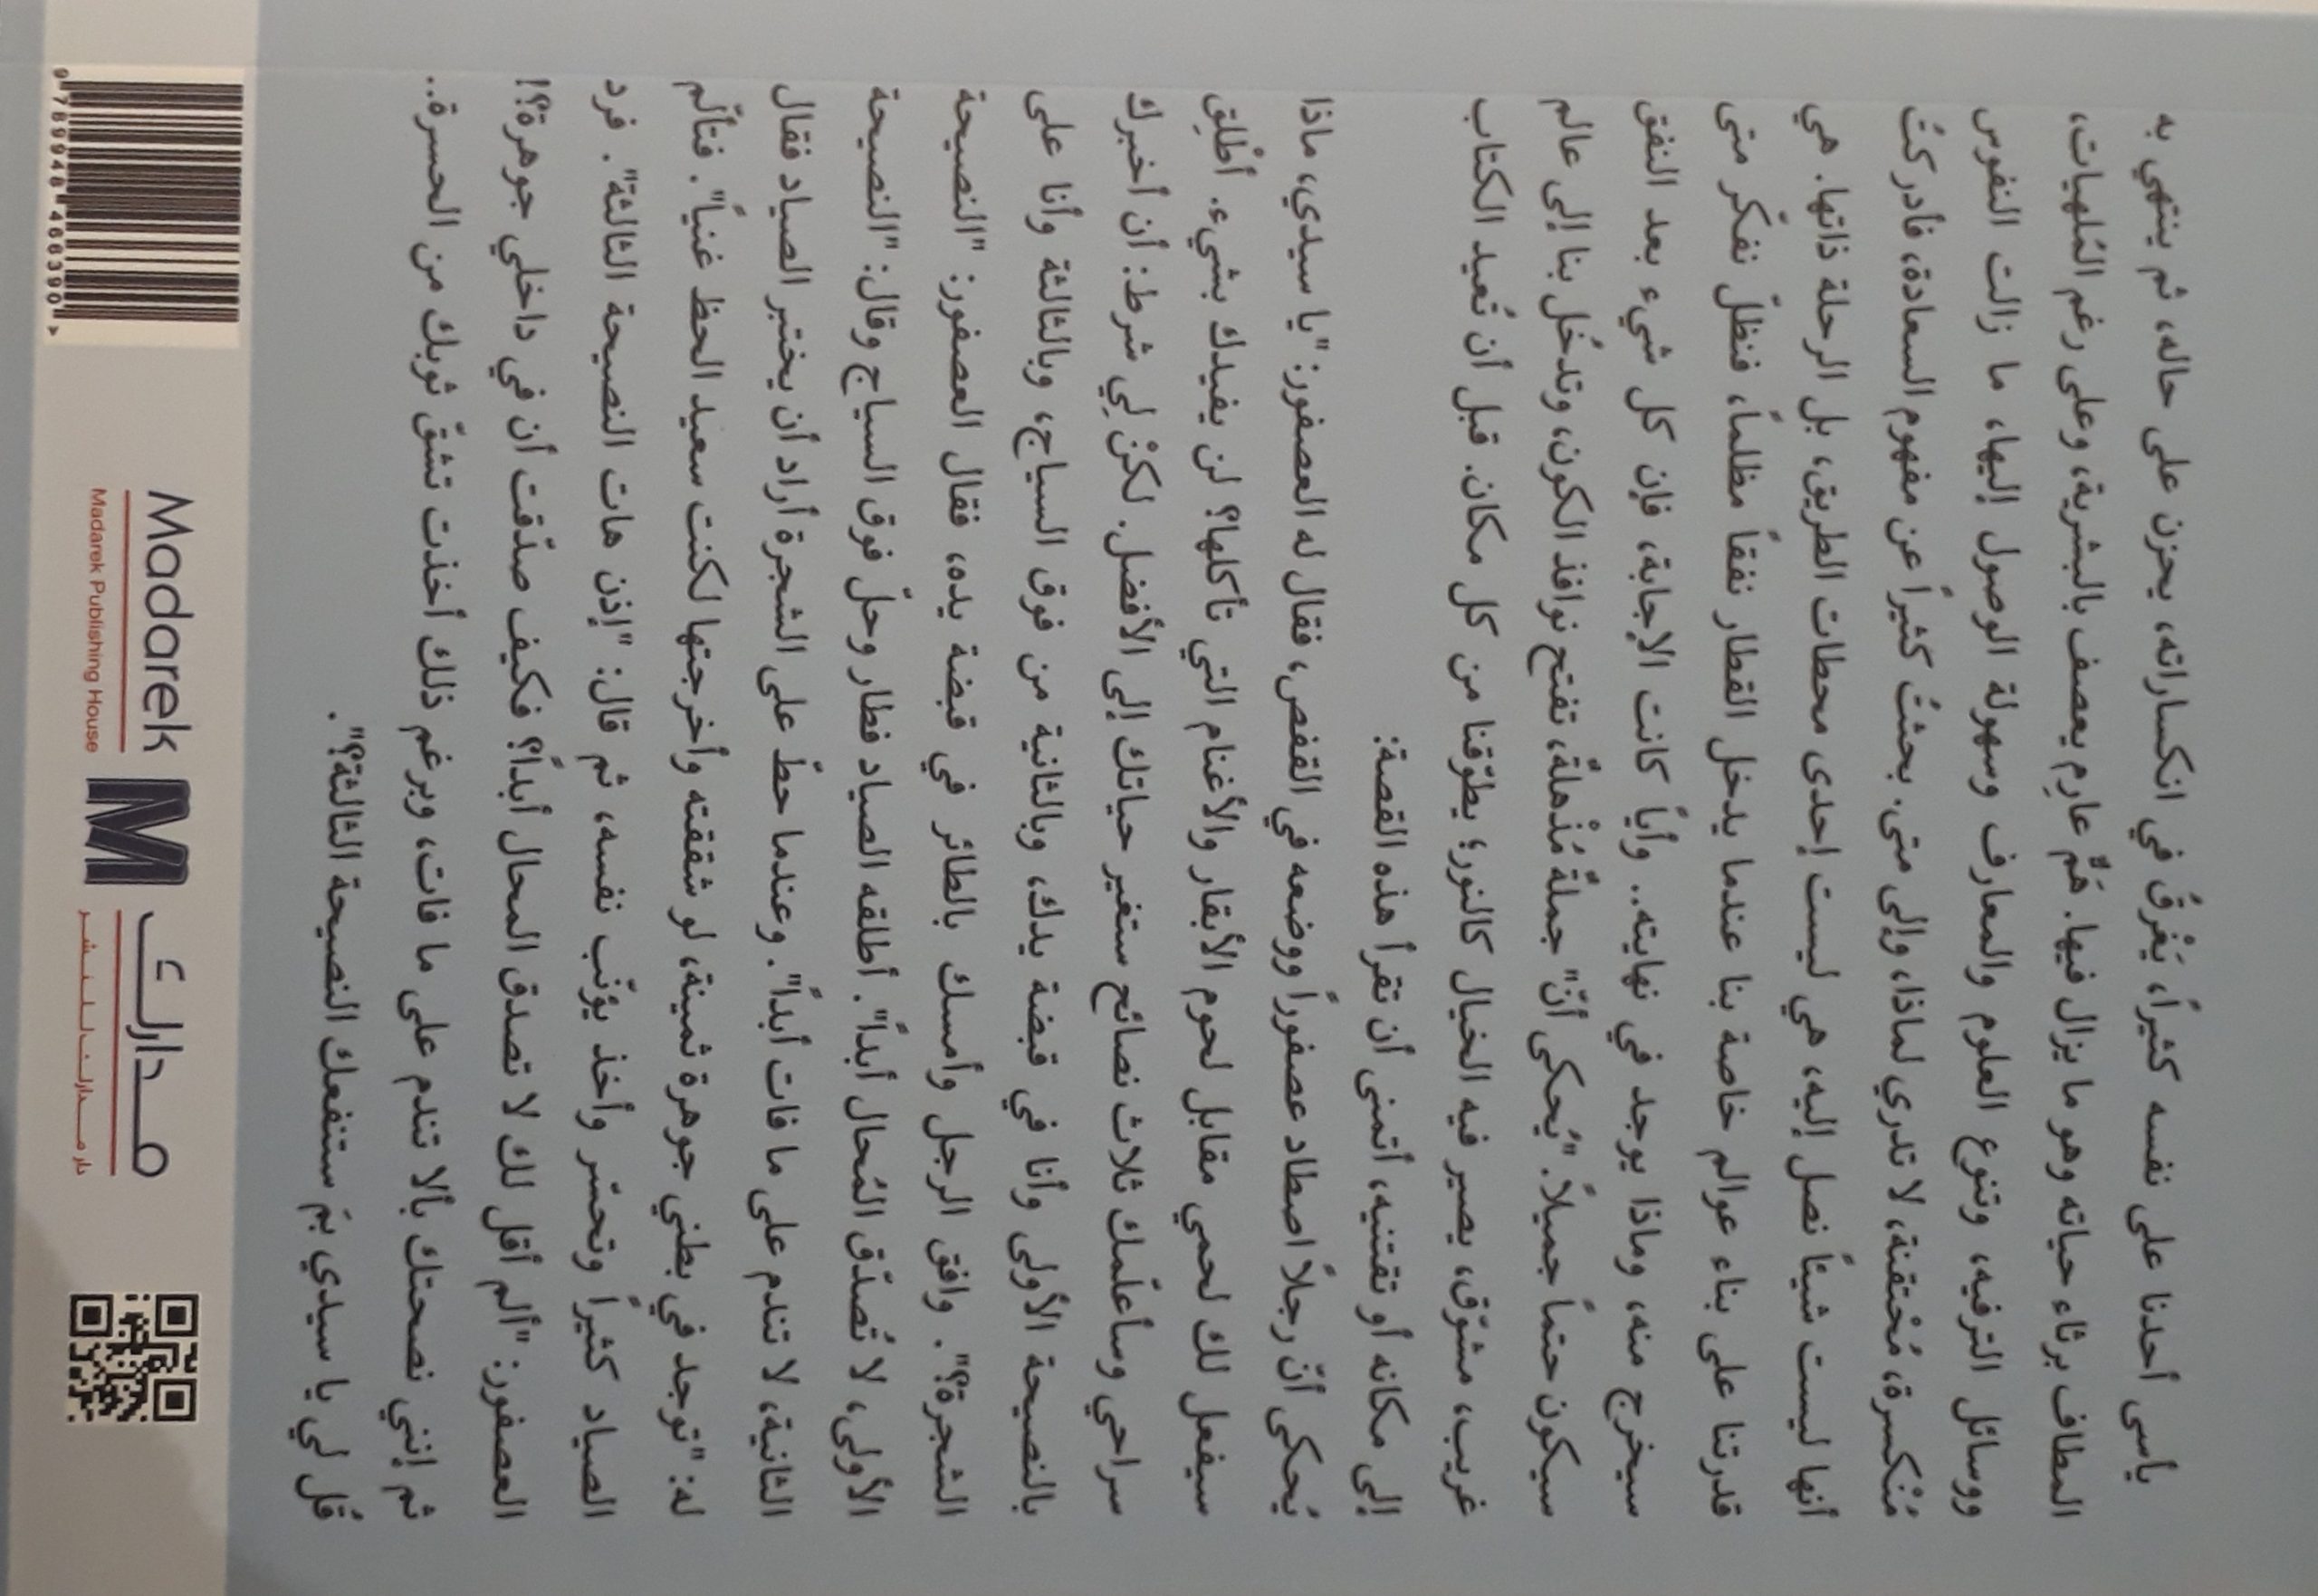 يأسى أحدنا على نفسه كثيراً، يَغْرقُ في انكساراته، يحزن على حاله، ثم ينتهي به
المطاف برثاء حياته وهو ما يزال فيها. هَمٌّ عارِم يعصف بالبشرية، وعلى رغم المُلهيات،
ووسائل الترفيه، وتنوع العلوم والمعارف وسهولة الوصول إليها، ما زالت النفوس
مُنْكسرة، مُحْتقنة، لا تدري لماذا، وإلى متى. بحثتُ كثيراً عن مفهوم السعادة، فأدركتُ
أنها ليست شيئاً نصل إليه، هي ليست إحدى محطات الطريق، بل الرحلة ذاتها. هي
قدرتنا على بناء عوالم خاصة بنا عندما يدخل القطار نفقاً مظلماً، فنظلّ نفكّر متى
سيخرج منه، وماذا يوجد في نهايته.. وأياً كانت الإجابة، فإن كل شيء بعد النفق
سيكون حتماً جميلاً. "يُحكى أنّ" جملةٌ مُذْهلةٌ، تفتح نوافذ الكون، وتدخُل بنا إلى عالم
غريب، مشوّق، يصير فيه الخيال كالنور؛ يطوّقنا من كل مكان. قبل أن تُعيد الكتاب
إلى مكانه أو تقتنيه، أتمنى أن تقرأ هذه القصة:
يُحكى أنّ رجلاً اصطاد عصفوراً ووضعه في القفص، فقال له العصفور: "يا سيدي، ماذا
سيفعل لك لحمي مقابل لحوم الأبقار والأغنام التي تأكلها؟ لن يفيدك بشيء. أَطْلِق
سراحي وسأعلّمك ثلاث نصائح ستغير حياتك إلى الأفضل. لكنْ لِي شرط: أن أخبرك
بالنصيحة الأولى وأنا في قبضة يدك، وبالثانية من فوق السياج، وبالثالثة وأنا على
الشجرة؟". وافق الرجل وأمسك بالطائر في قبضة يده، فقال العصفور: "النصيحة
الأولى، لا تُصدّق المُحال أبداً". أطلقه الصياد فطار وحلّ فوق السياج وقال: "النصيحة
الثانية، لا تندم على ما فات أبداً". وعندما حطّ على الشجرة أراد أن يختبر الصياد فقال
له: "توجد في بطني جوهرة ثمينة، لو شققته وأخرجتها لكنت سعيد الحظ غنياً". فتألّم
الصياد كثيراً وتحسّر وأخذ يؤنّب نفسه، ثم قال: "إذن هات النصيحة الثالثة". فرد
العصفور: "ألم أقل لك لا تصدق المحال أبداً؟ فكيف صدّقت أن في داخلي جوهرة؟!
ثم إنني نصحتك بألا تندم على ما فات، وبرغم ذلك أخذت تشقّ ثوبك من الحسرة..
قُل لي يا سيدي بمَ ستنفعك النصيحة الثالثة؟".
9 789948 466390 >
Madarek
Madarek Publishing House
M
مدارك
دار مدارك للنشر